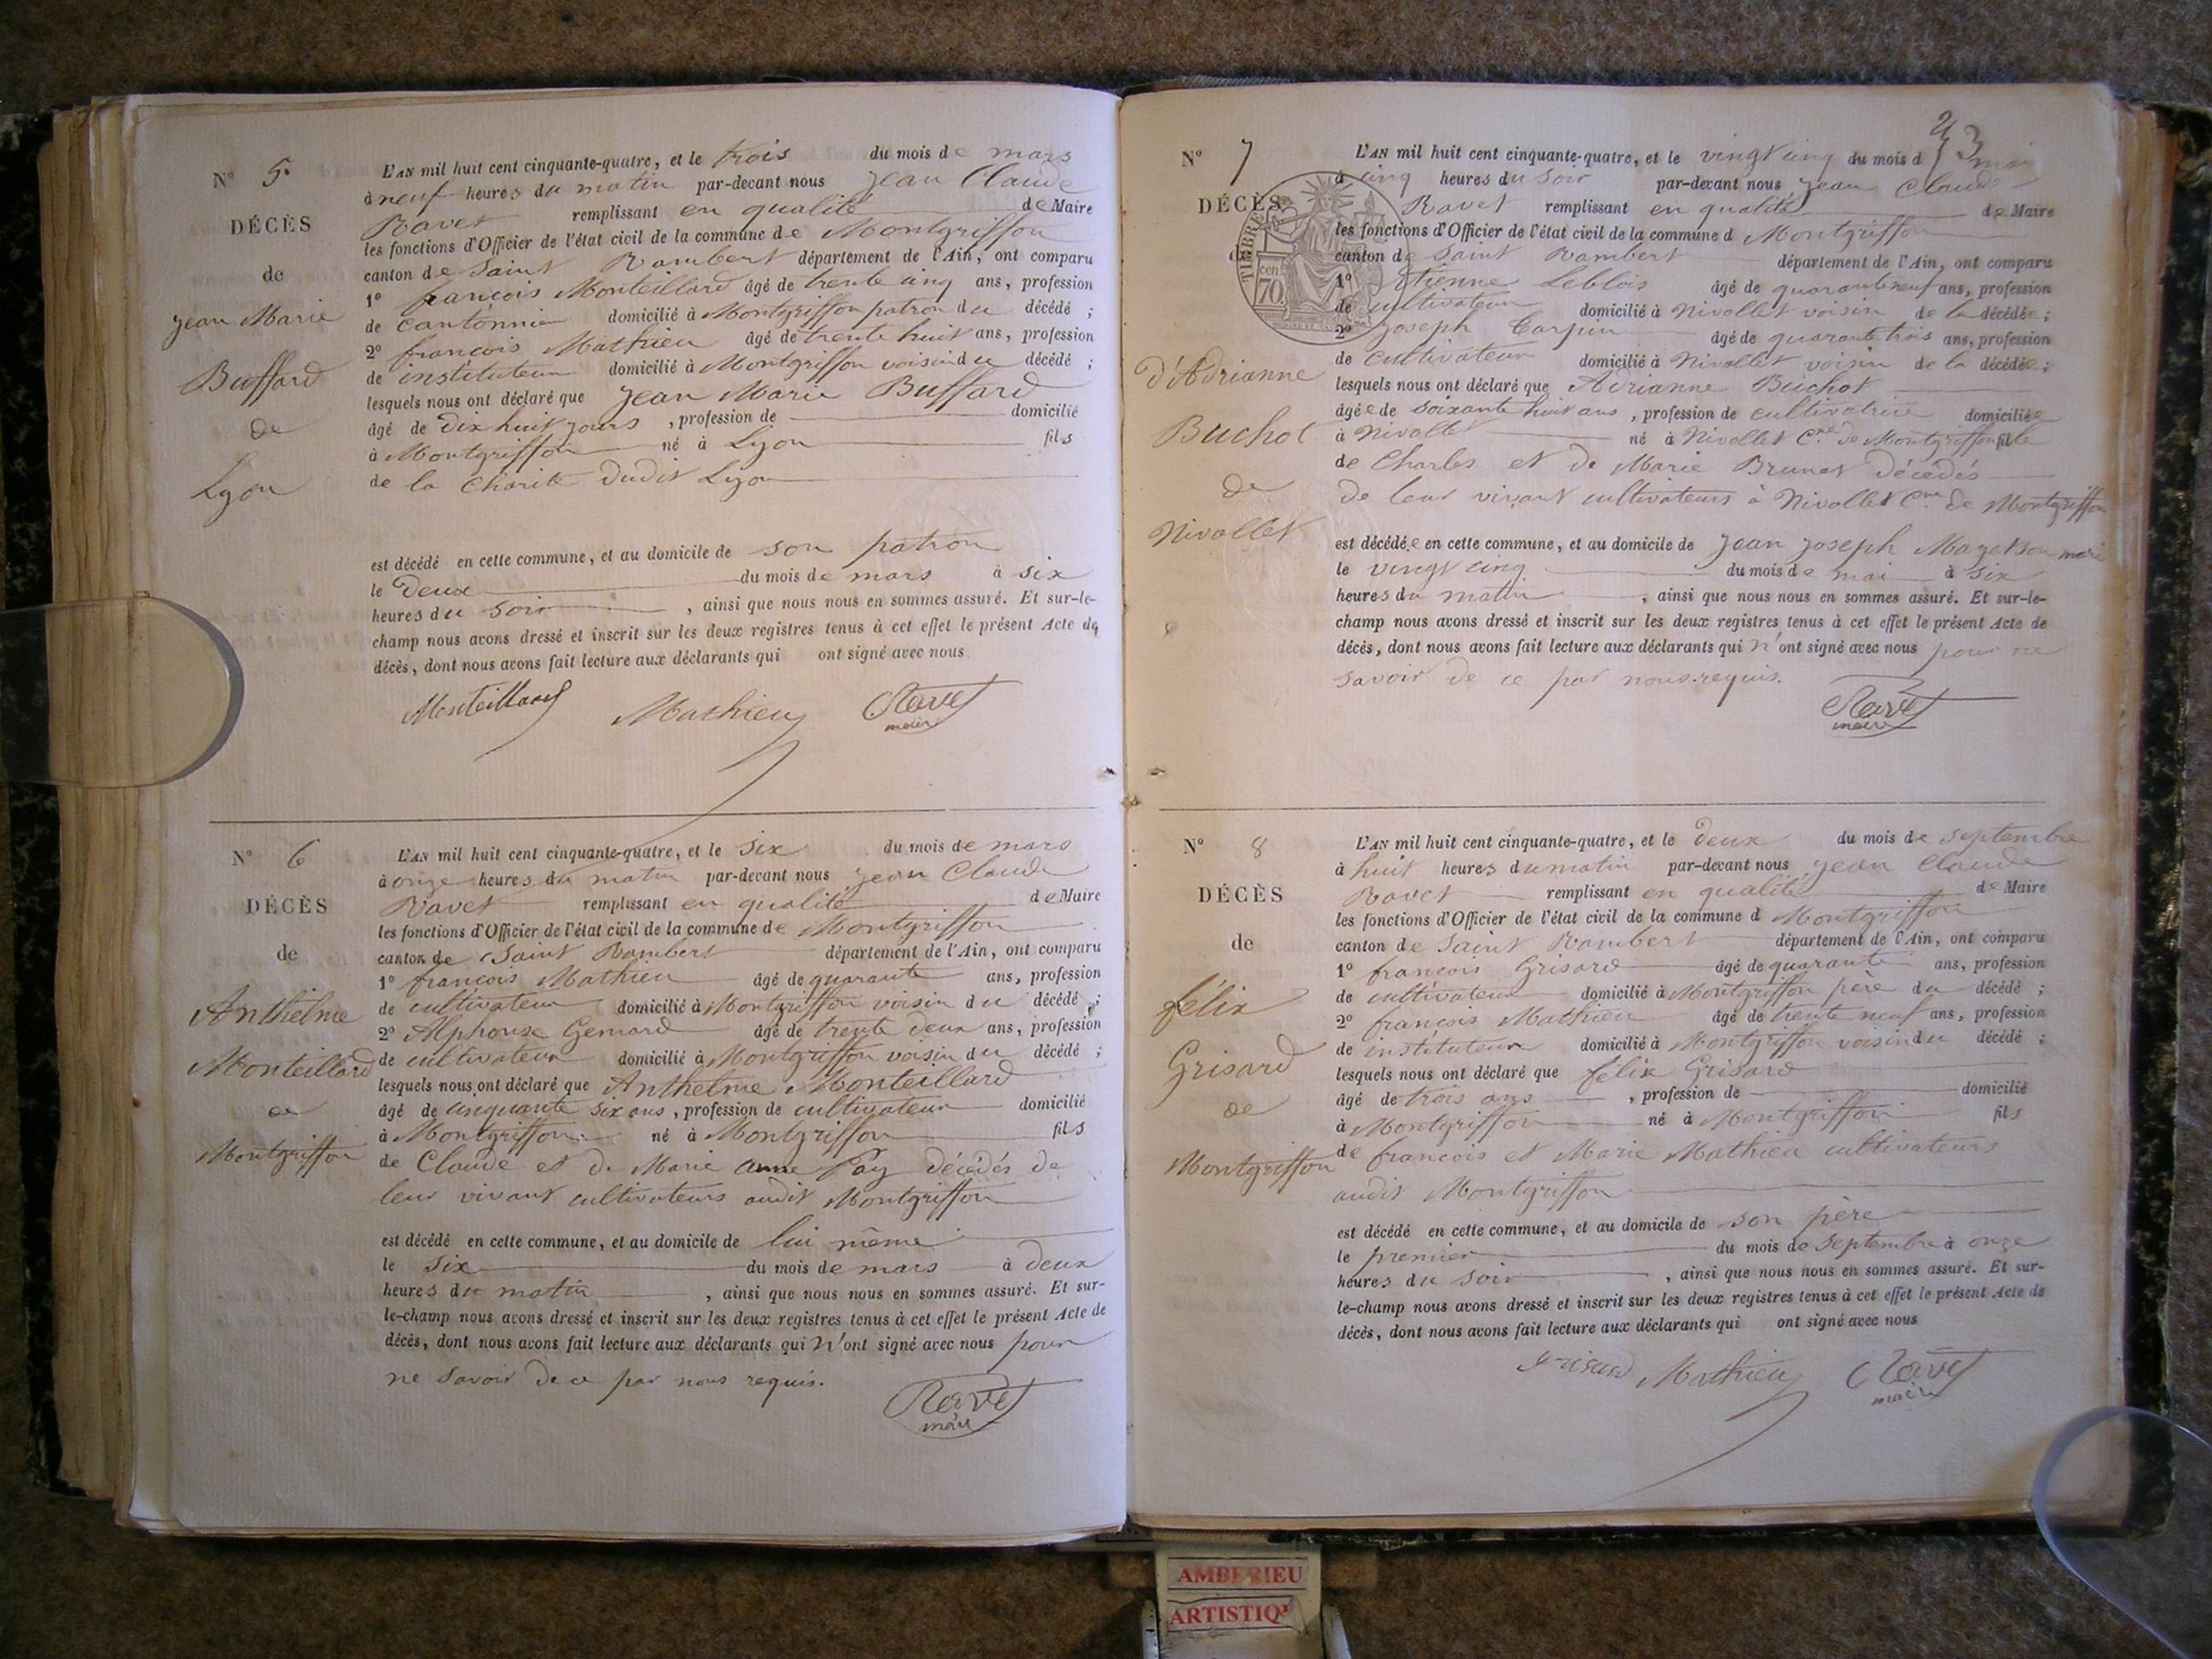 N° 5.
DÉCÈS
de
Jean Marie
Buffard
de
Lyon
L'AN mil huit cent cinquante-quatre, et le trois du mois de mars
à neuf heures du matin par-devant nous Jean Claude
Ravet remplissant en qualité de Maire
les fonctions d'Officier de l'état civil de la commune de Montgriffon
canton de Saint Rambert département de l'Ain, ont comparu
1° françois Monteillard âgé de trente cinq ans, profession
de cantonnier domicilié à Montgriffon patron du décédé ;
2° françois Mathieu âgé de trente huit ans, profession
de instituteur domicilié à Montgriffon voisin du décédé ;
lesquels nous ont déclaré que Jean Marie Buffard
âgé de dix huit jours , profession de domicilié
à Montgriffon né à Lyon fils
de la Charité dudit Lyon
est décédé en cette commune, et au domicile de son patron
le deux du mois de mars à six
heures du soir , ainsi que nous nous en sommes assuré. Et sur-le-
champ nous avons dressé et inscrit sur les deux registres tenus à cet effet le présent Acte de
décès, dont nous avons fait lecture aux déclarants qui ont signé avec nous
Monteillard Mathieu Ravet
maire
N° 6
DÉCÈS
de
Anthelme
Monteillard
de
Montgriffon
L'AN mil huit cent cinquante-quatre, et le six du mois de mars
à onze heures du matin par-devant nous Jean Claude
Ravet remplissant en qualité de Maire
les fonctions d'Officier de l'état civil de la commune de Montgriffon
canton de Saint Rambert département de l'Ain, ont comparu
1° françois Mathieu âgé de quarante ans, profession
de cultivateur domicilié à Montgriffon voisin du décédé ;
2° Alphonse Gemard âgé de trente deux ans, profession
de cultivateur domicilié à Montgriffon voisin du décédé ;
lesquels nous ont déclaré que Anthelme Monteillard
âgé de cinquante six ans , profession de cultivateur domicilié
à Montgriffon né à Montgriffon fils
de Claude et de Marie anne décédés de
leur vivant cultivateurs audit Montgriffon
est décédé en cette commune, et au domicile de lui même
le six du mois de mars à deux
heures du matin , ainsi que nous nous en sommes assuré. Et sur-
le-champ nous avons dressé et inscrit sur les deux registres tenus à cet effet le présent Acte de
décès, dont nous avons fait lecture aux déclarants qui n'ont signé avec nous pour
ne savoir de ce par nous requis.
Ravet
maire
N° 7
DÉCÈS
d'Adrianne
Buchot
de
Nivollet
TIMBRE
70 cen
L'AN mil huit cent cinquante-quatre, et le vingt cinq du mois d mai
à cinq heures du soir par-devant nous Jean Claude
Ravet remplissant en qualité de Maire
les fonctions d'Officier de l'état civil de la commune d Montgriffon
canton de Saint Rambert département de l'Ain, ont comparu
1° Etienne Leblois âgé de quarante neuf ans, profession
de cultivateur domicilié à Nivollet voisin de la décédée ;
2° Joseph âgé de quarante trois ans, profession
de cultivateur domicilié à Nivollet voisin de la décédée ;
lesquels nous ont déclaré que Adrianne Buchot
âgée de soixante huit ans , profession de cultivatrice domiciliée
à Nivollet né à Nivollet Cne de Montgriffon fille
de Charles et de Marie Brunet décédés
de leur vivant cultivateurs à Nivollet Cne de Montgriffon
est décédée en cette commune, et au domicile de Jean Joseph Mazet son mari
le vingt cinq du mois de mai à six
heures du matin , ainsi que nous nous en sommes assuré. Et sur-le-
champ nous avons dressé et inscrit sur les deux registres tenus à cet effet le présent Acte de
décès, dont nous avons fait lecture aux déclarants qui n'ont signé avec nous pour ne
savoir de ce par nous requis.
Ravet
maire
N° 8
DÉCÈS
de
félix
Grisard
de
Montgriffon
L'AN mil huit cent cinquante-quatre, et le deux du mois de septembre
à huit heures du matin par-devant nous Jean Claude
Ravet remplissant en qualité de Maire
les fonctions d'Officier de l'état civil de la commune d Montgriffon
canton de Saint Rambert département de l'Ain, ont comparu
1° françois Grisard âgé de quarante ans, profession
de cultivateur domicilié à Montgriffon père du décédé ;
2° françois Mathieu âgé de trente neuf ans, profession
de instituteur domicilié à Montgriffon voisin du décédé ;
lesquels nous ont déclaré que félix Grisard
âgé de trois ans , profession de domicilié
à Montgriffon né à Montgriffon fils
de françois et Marie Mathieu cultivateurs
audit Montgriffon
est décédé en cette commune, et au domicile de son père
le premier du mois de septembre à onze
heures du soir , ainsi que nous nous en sommes assuré. Et sur-
le-champ nous avons dressé et inscrit sur les deux registres tenus à cet effet le présent Acte de
décès, dont nous avons fait lecture aux déclarants qui ont signé avec nous
Grisard Mathieu Ravet
maire
AMBERIEU
ARTISTIQ